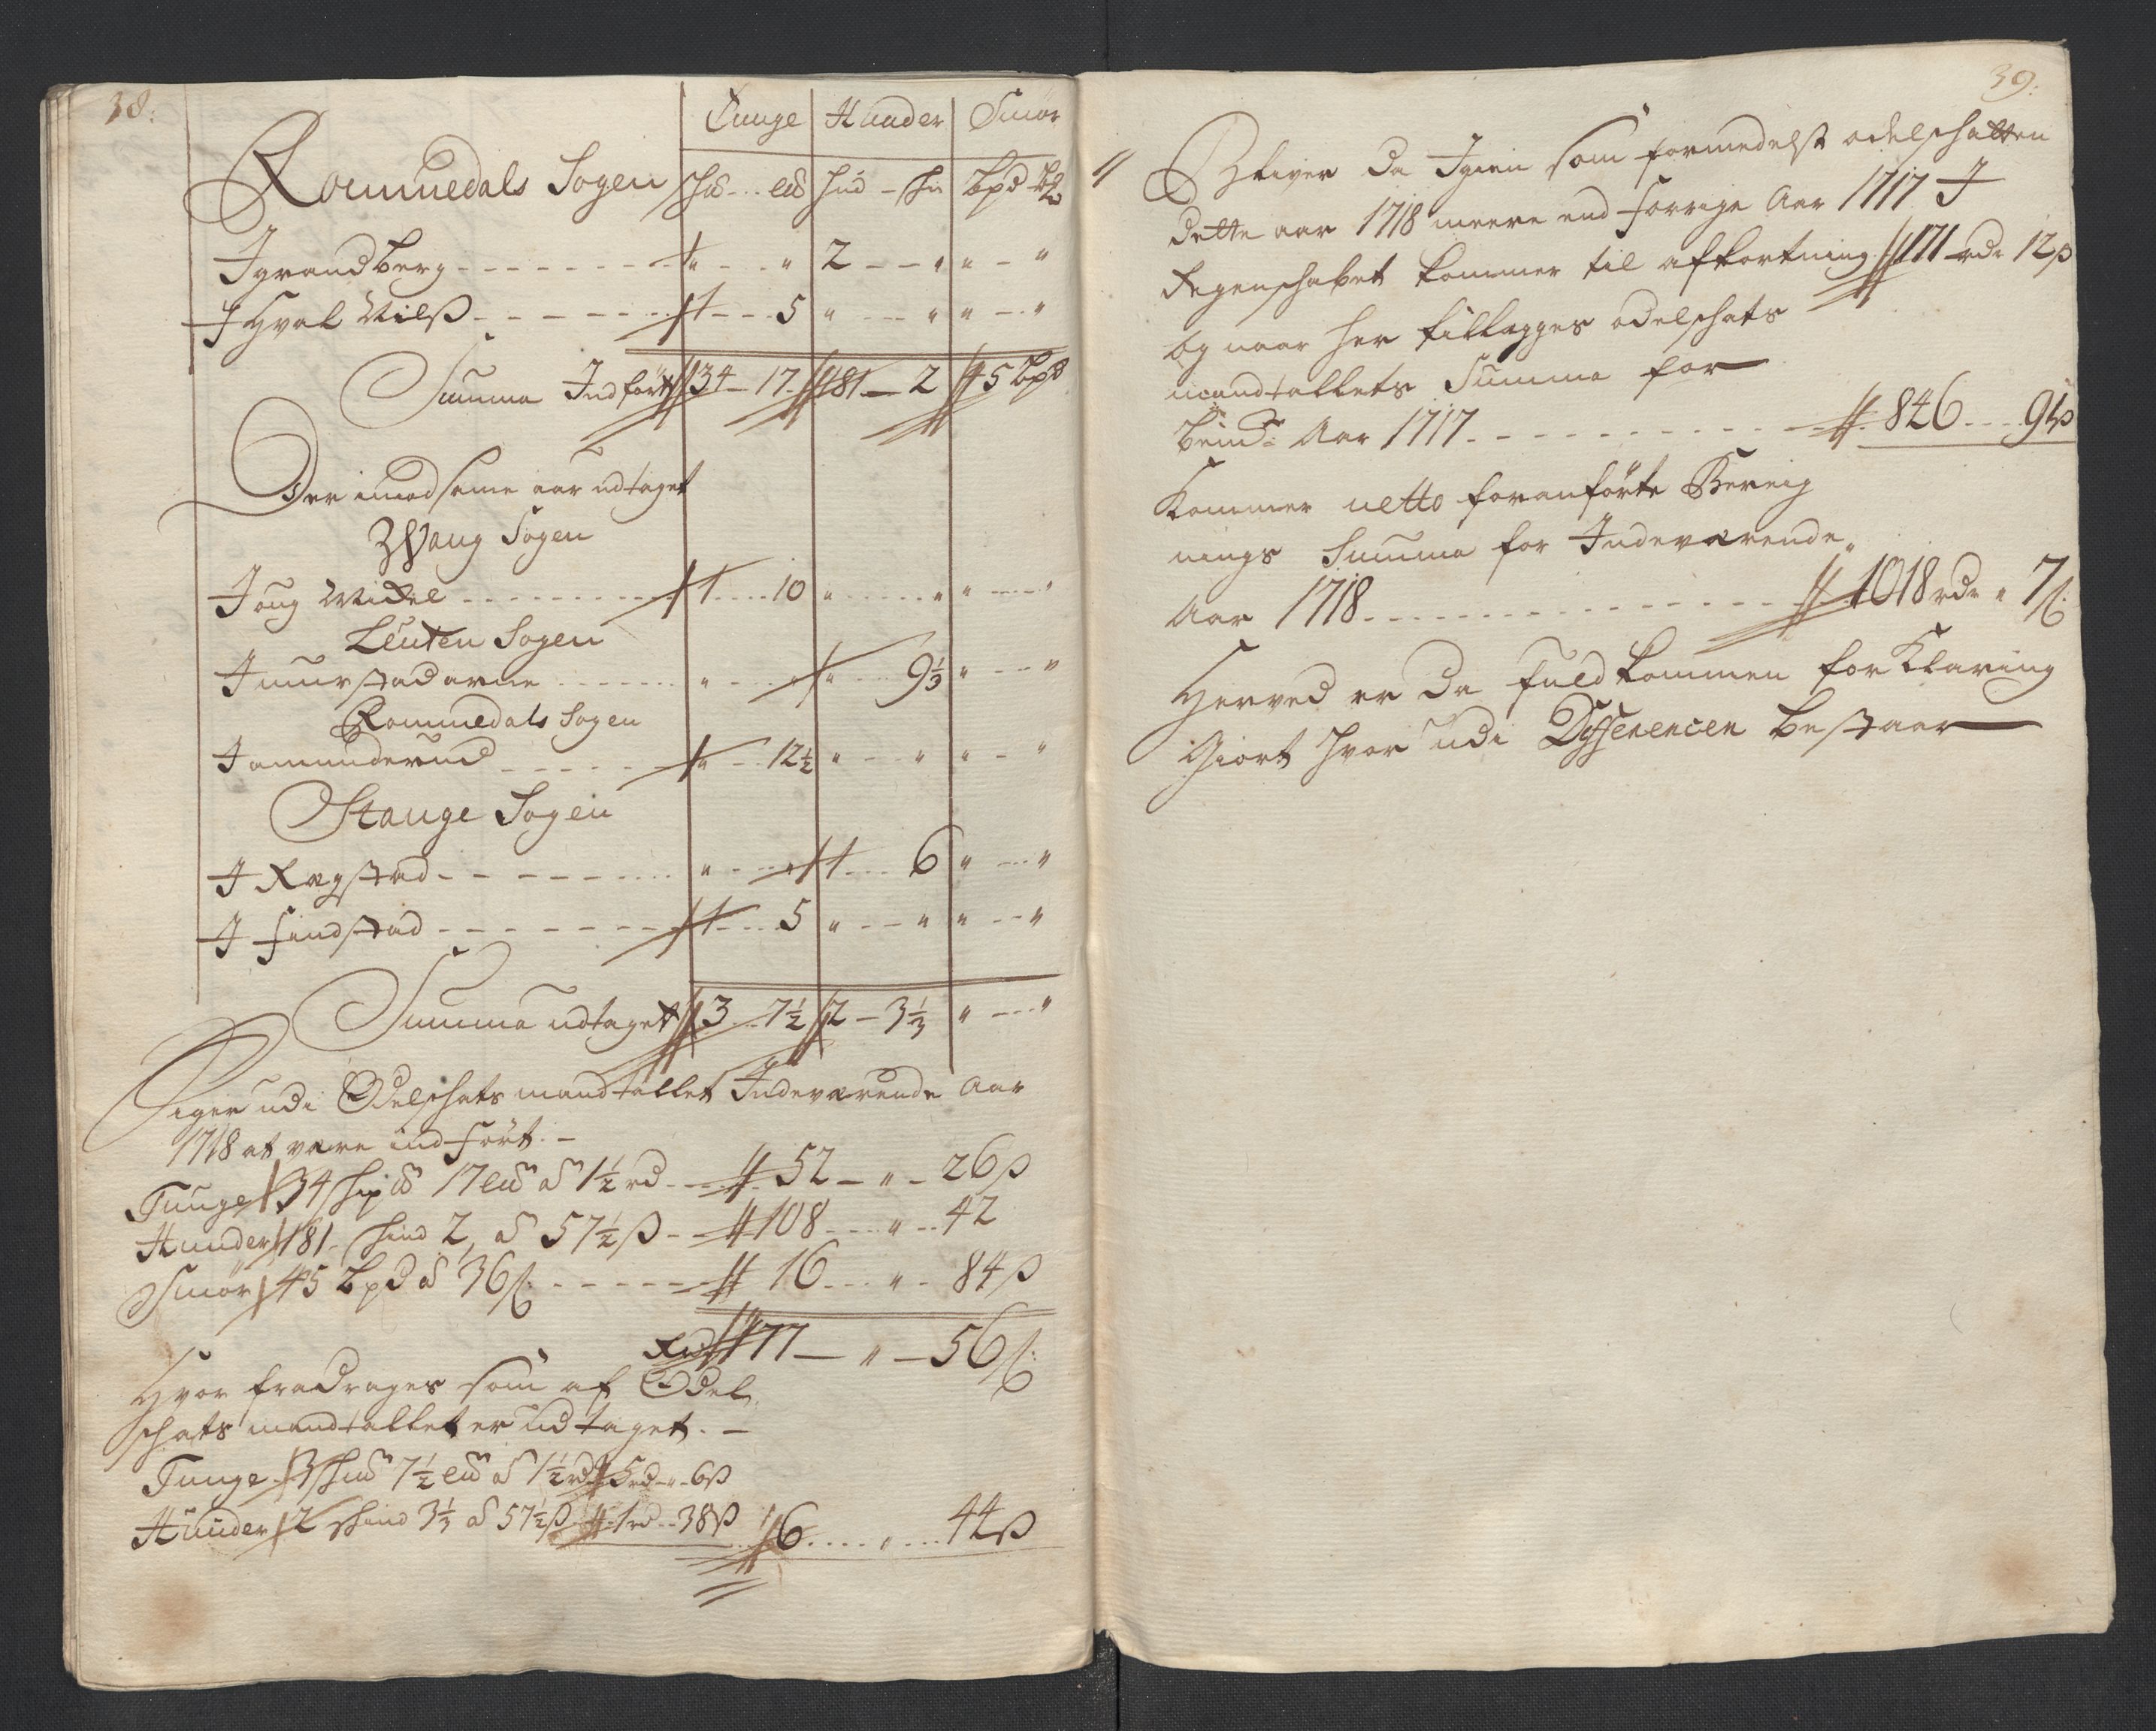 38:
Tunge | Huuder | Smør
Rommedals Sogen
I grandberg - - - " " 2 - - " " - "
I Hval Nils - - - 1 - - 5 " - - " " - "
Summa Indført 34 - 17 181 - 2 45 bpd
Der imod samme aar udtaget
Wang Sogen
I oug Midel - - - 1 - - 10 " - - " " - "
Leuten Sogen
I muurstad arne - - - " - - " " - - 9⅓ " - - "
Rommedals Sogen
I amunderud - - - " - - 12½ " - - " " - "
Stange Sogen
I Ragstad - - - " - - " 1 - - 6 " - - "
I findstad - - - 1 - - 5 " - - " " - - "
Summa udtaget 3 - 7½ 2 - 3⅓ " - - "
Siger udi Odelschats mandtallet Indeværende Aar
1718 at være indført. -
Tunge 34 skp 17 lid a 1½ rd - - 52 - " - 26 ß
Huuder 181 hud 2, a 57½ ß - - 108 - " - 42
Smør 45 bpd a 36 ß - - - 16 - " - 84 ß
Rd 177 - " - 56 ß
Hvor fradrages som af Odel
schats mandtallet er udtaget. -
Tunge 3 skd 7½ lid a 1½ rd 5 rd - " - 6 ß
Huuder 2 skind 3⅓ a 57½ ß 1 rd - 38 ß 6 - " - 44 ß
39:
Bliver da Igien som formedelst odelschatten
dette aar 1718 meere end forrige Aar 1717 I
Regenschabet kommer til afkortning 171 rdr 12 ß
og naar her tillegges odelschats
mandtallets Summa for
bemte Aar 1717 - - - 846 - - 91 ß
Kommer netto foranførte Bereig
nings Summa for Indeværende
Aar 1718 - - - 1018 rdr " 7 ß
Herved er da fuldkommen forklaring
Giort hvor udi Differencen bestaar